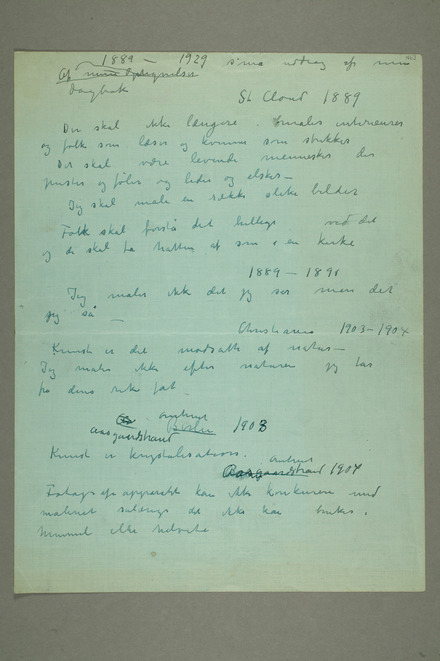 1889 – 1929 små uddrag af min
Af mine Optegnelser
Dagbok
St Cloud 1889
Der skal ikke længere males interieurer
og folk som læser og kvinner som strikker
Det skal være levende mennesker der
puster og føler og lider og elsker –
Jeg skal male en række slike billeder
Folk skal forstå det hellige ved det
og de skal ta hatten af som i en kirke
1889 – 1890
Jeg maler ikke det jeg ser men det
jeg så –
Christiania 1903–1904
Kunst er det modsatte af natur –
Jeg maler ikke efter naturen jeg tar
fra dens rike fat –
omtrent
Aasgaardstrand Berlin 1908
Kunst er krystalisation.
omtrent
Aasgaardstrand 1904
Fotografiapparatet kan ikke konkurere med
maleriet sålænge det ikke kan brukes i
himmel eller helvete